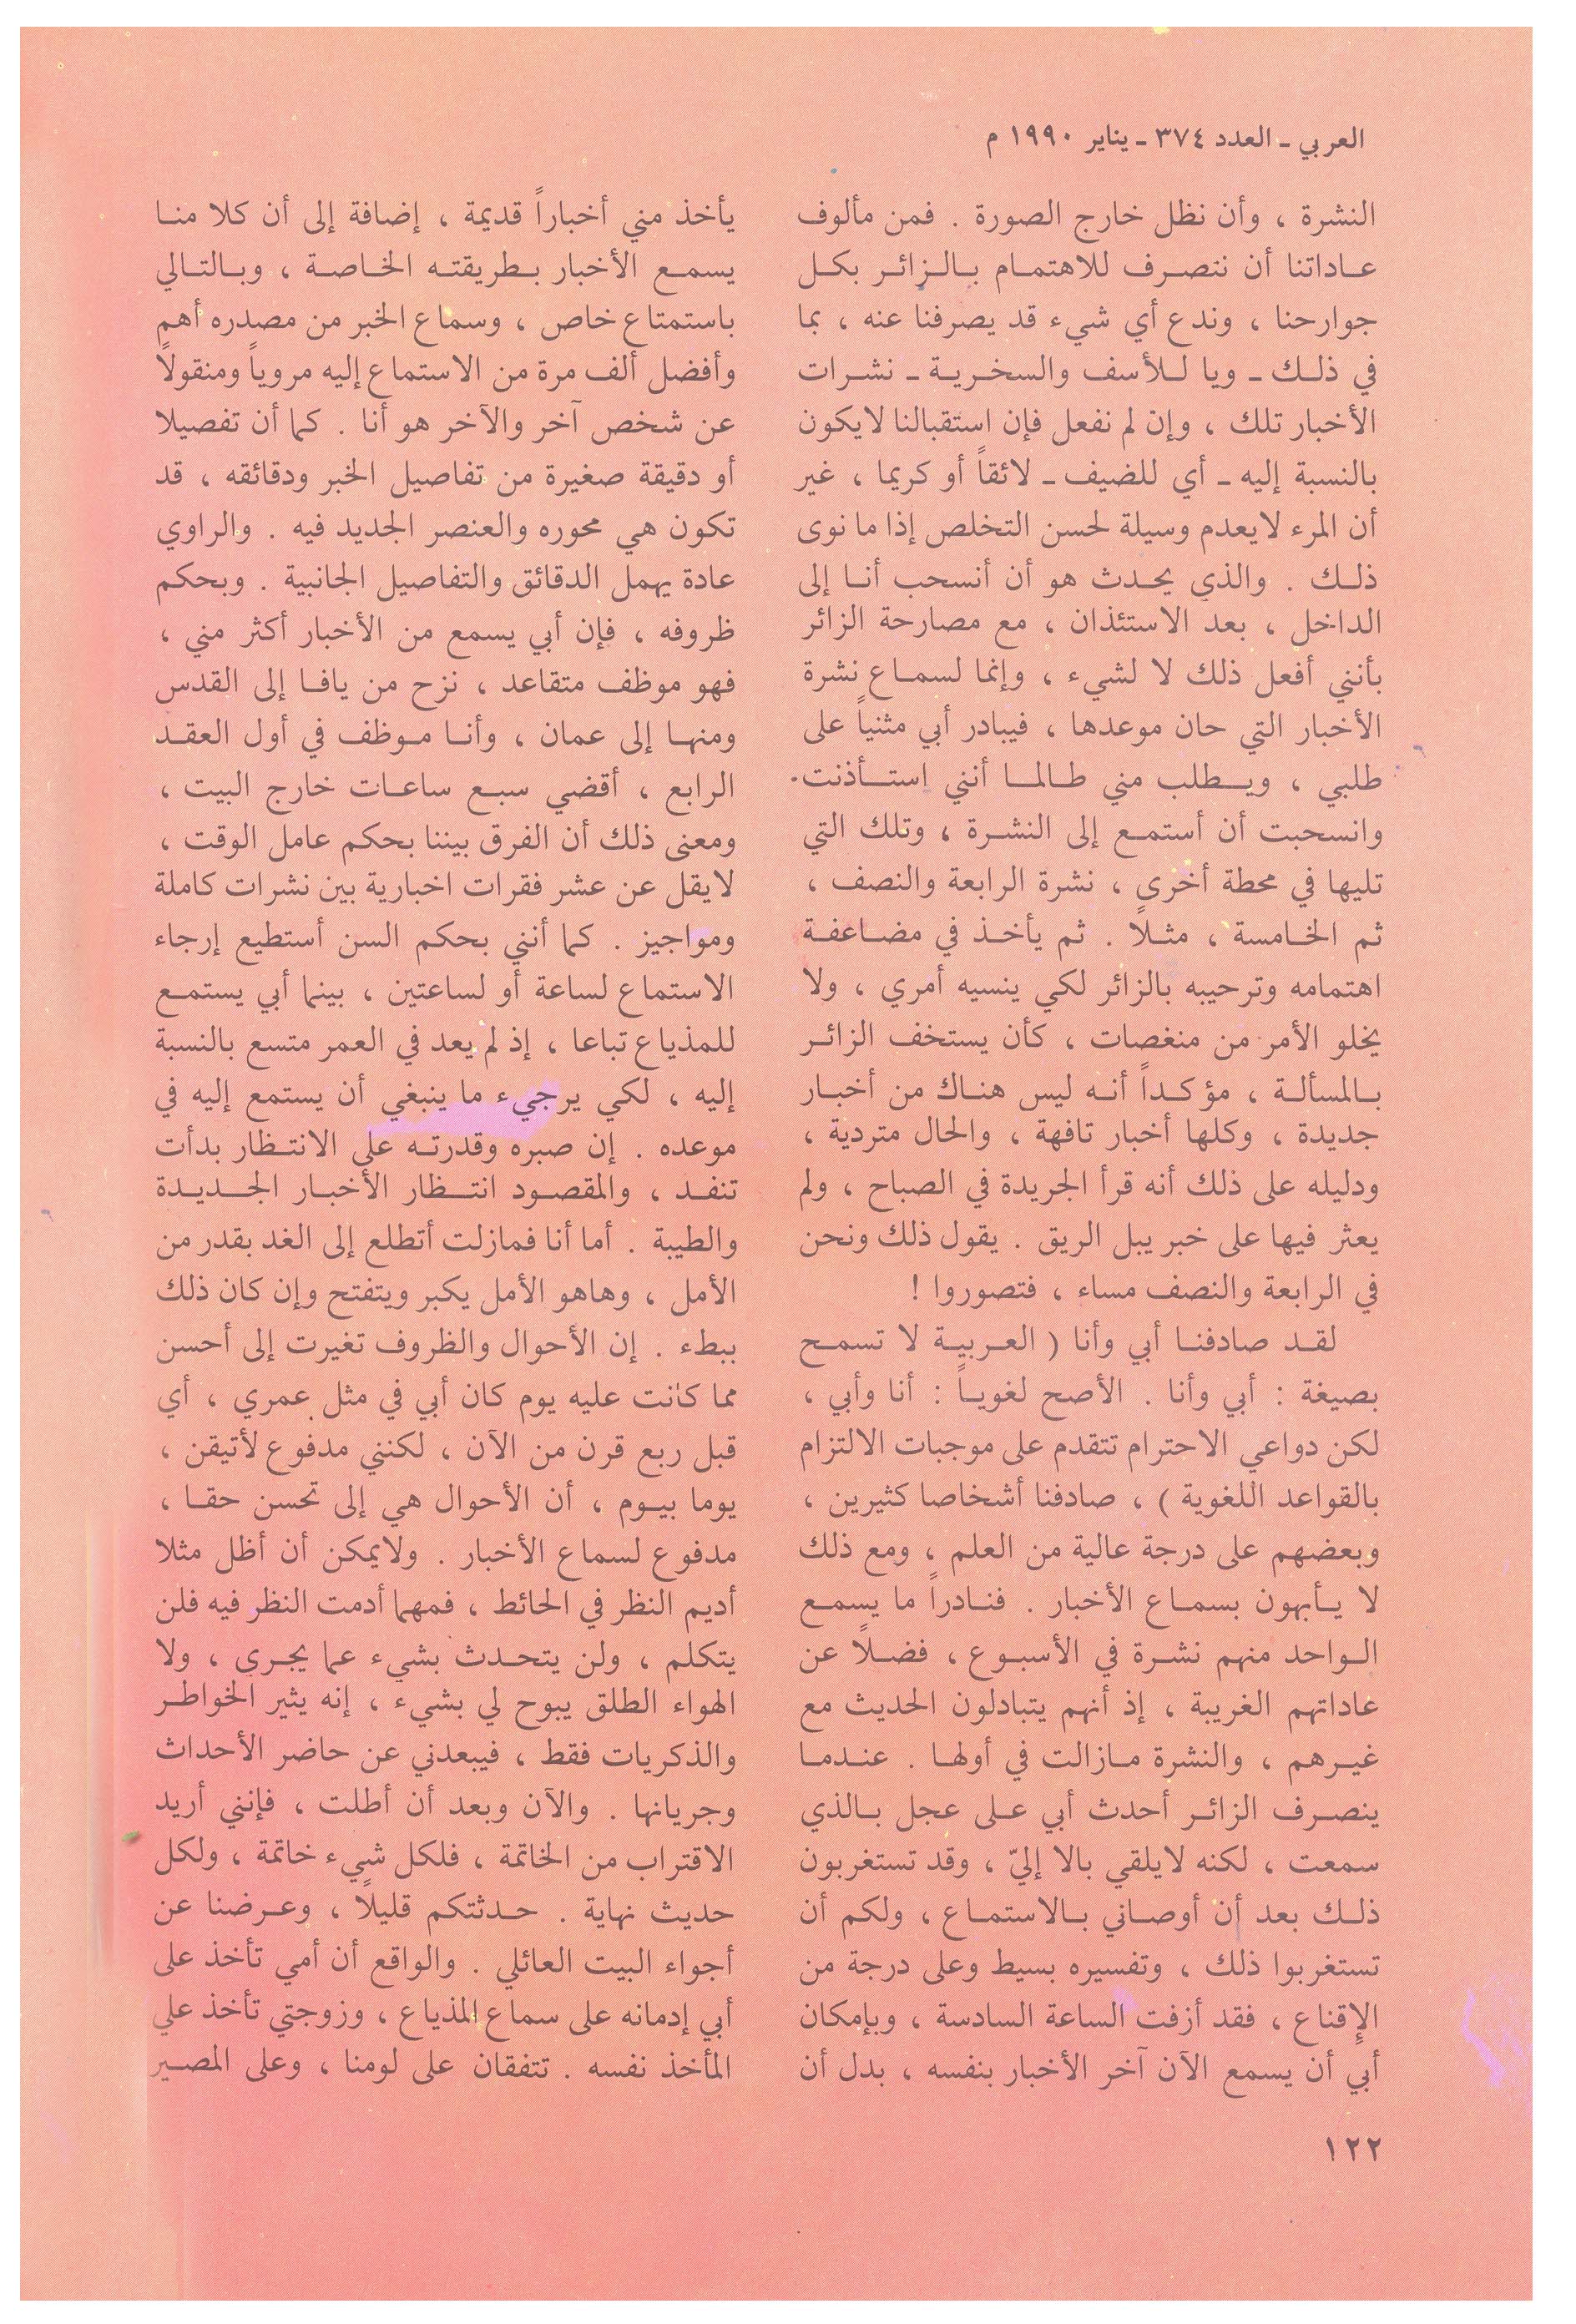 العربي - العدد ٣٧٤ - يناير ١٩٩٠ م
النشرة ، وأن نظل خارج الصورة . فمن مألوف
عاداتنا أن ننصرف للاهتمام بالزائر بكل
جوارحنا ، وندع أي شيء قد يصرفنا عنه ، بما
في ذلك - ويا للأسف والسخرية - نشرات
الأخبار تلك ، وإن لم نفعل فإن استقبالنا لايكون
بالنسبة إليه - أي للضيف - لائقاً أو كريما ، غير
أن المرء لايعدم وسيلة لحسن التخلص إذا ما نوى
ذلك . والذي يحدث هو أن أنسحب أنا إلى
الداخل ، بعد الاستئذان ، مع مصارحة الزائر
بأنني أفعل ذلك لا لشيء ، وإنما لسماع نشرة
الأخبار التي حان موعدها ، فيبادر أبي مثنياً على
طلبي ، ويطلب مني طالما أنني استأذنت
وانسحبت أن أستمع إلى النشرة ، وتلك التي
تليها في محطة أخرى ، نشرة الرابعة والنصف ،
ثم الخامسة ، مثلاً . ثم يأخذ في مضاعفة
اهتمامه وترحيبه بالزائر لكي ينسيه أمري ، ولا
يخلو الأمر من منغصات ، كأن يستخف الزائر
بالمسألة ، مؤكداً أنه ليس هناك من أخبار
جديدة ، وكلها أخبار تافهة ، والحال متردية ،
ودليله على ذلك أنه قرأ الجريدة في الصباح ، ولم
يعثر فيها على خبر يبل الريق . يقول ذلك ونحن
في الرابعة والنصف مساء ، فتصوروا !
لقد صادفنا أبي وأنا ( العربية لا تسمح
بصيغة : أبي وأنا . الأصح لغوياً : أنا وأبي ،
لكن دواعي الاحترام تتقدم على موجبات الالتزام
بالقواعد اللغوية ) ، صادفنا أشخاصا كثيرين ،
وبعضهم على درجة عالية من العلم ، ومع ذلك
لا يأبهون بسماع الأخبار . فنادراً ما يسمع
الواحد منهم نشرة في الأسبوع ، فضلاً عن
عاداتهم الغريبة ، إذ أنهم يتبادلون الحديث مع
غيرهم ، والنشرة مازالت في أولها . عندما
ينصرف الزائر أحدث أبي على عجل بالذي
سمعت ، لكنه لايلقي بالا إليّ ، وقد تستغربون
ذلك بعد أن أوصاني بالاستماع ، ولكم أن
تستغربوا ذلك ، وتفسيره بسيط وعلى درجة من
الإقناع ، فقد أزفت الساعة السادسة ، وبإمكان
أبي أن يسمع الآن آخر الأخبار بنفسه ، بدل أن
يأخذ مني أخباراً قديمة ، إضافة إلى أن كلا منا
يسمع الأخبار بطريقته الخاصة ، وبالتالي
باستمتاع خاص ، وسماع الخبر من مصدره أهم
وأفضل ألف مرة من الاستماع إليه مروياً ومنقولاً
عن شخص آخر والآخر هو أنا . كما أن تفصيلا
أو دقيقة صغيرة من تفاصيل الخبر ودقائقه ، قد
تكون هي محوره والعنصر الجديد فيه . والراوي
عادة يهمل الدقائق والتفاصيل الجانبية . وبحكم
ظروفه ، فإن أبي يسمع من الأخبار أكثر مني ،
فهو موظف متقاعد ، نزح من يافا إلى القدس
ومنها إلى عمان ، وأنا موظف في أول العقد
الرابع ، أقضي سبع ساعات خارج البيت ،
ومعنى ذلك أن الفرق بيننا بحكم عامل الوقت ،
لايقل عن عشر فقرات اخبارية بين نشرات كاملة
ومواجيز . كما أنني بحكم السن أستطيع إرجاء
الاستماع لساعة أو لساعتين ، بينما أبي يستمع
للمذياع تباعا ، إذ لم يعد في العمر متسع بالنسبة
إليه ، لكي يرجيء ما ينبغي أن يستمع إليه في
موعده . إن صبره وقدرته على الانتظار بدأت
تنفد ، والمقصود انتظار الأخبار الجديدة
والطيبة . أما أنا فمازلت أتطلع إلى الغد بقدر من
الأمل ، وهاهو الأمل يكبر ويتفتح وإن كان ذلك
ببطء . إن الأحوال والظروف تغيرت إلى أحسن
مما كانت عليه يوم كان أبي في مثل عمري ، أي
قبل ربع قرن من الآن ، لكنني مدفوع لأتيقن ،
يوما بيوم ، أن الأحوال هي إلى تحسن حقا ،
مدفوع لسماع الأخبار . ولايمكن أن أظل مثلا
أديم النظر في الحائط ، فمهما أدمت النظر فيه فلن
يتكلم ، ولن يتحدث بشيء عما يجري ، ولا
الهواء الطلق يبوح لي بشيء ، إنه يثير الخواطر
والذكريات فقط ، فيبعدني عن حاضر الأحداث
وجريانها . والآن وبعد أن أطلت ، فإنني أريد
الاقتراب من الخاتمة ، فلكل شيء خاتمة ، ولكل
حديث نهاية . حدثتكم قليلاً ، وعرضنا عن
أجواء البيت العائلي . والواقع أن أمي تأخذ على
أبي إدمانه على سماع المذياع ، وزوجتي تأخذ علي
المأخذ نفسه . تتفقان على لومنا ، وعلى المصير
١٢٢